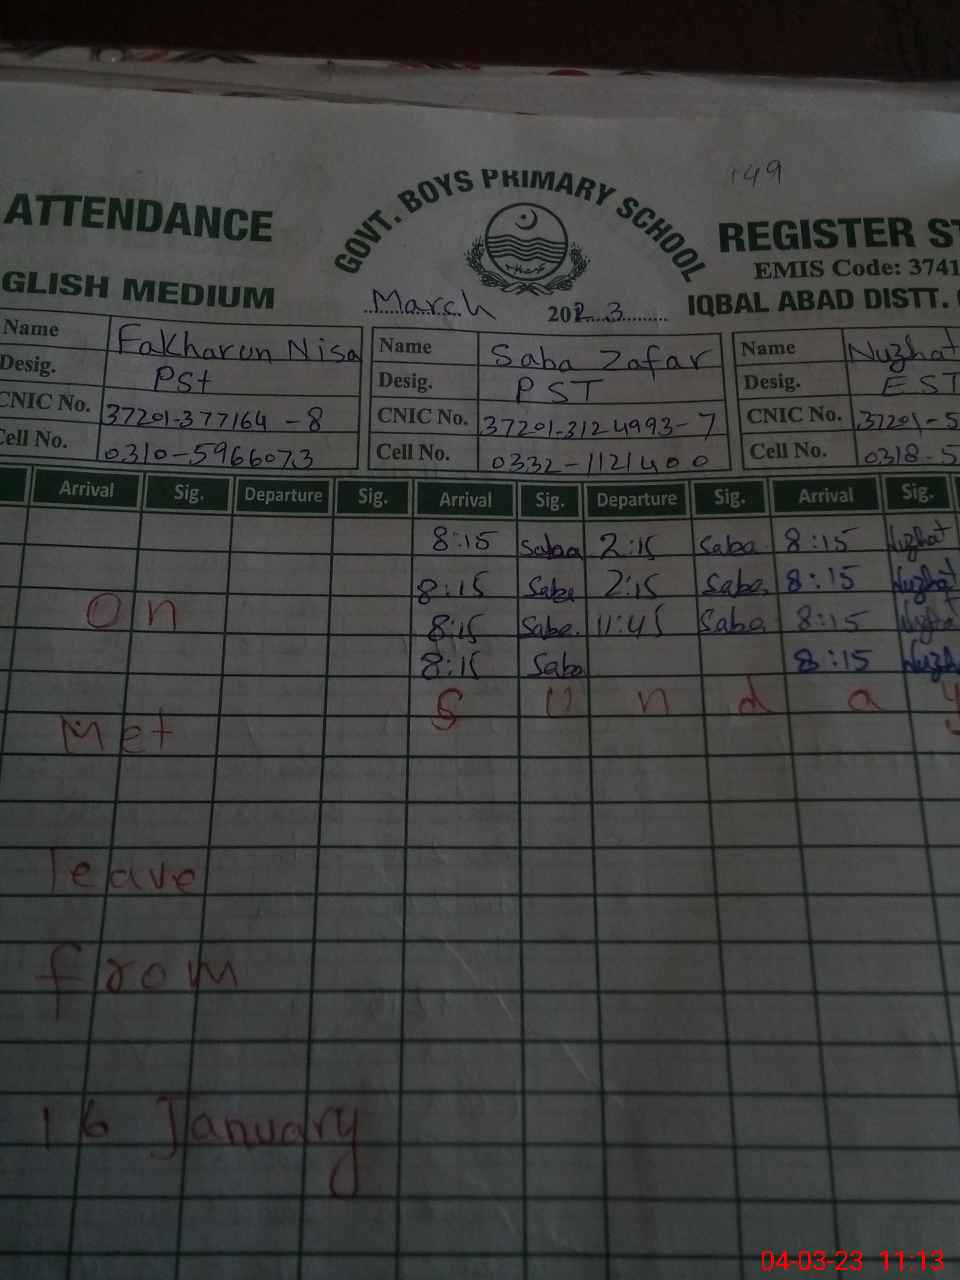 149
ATTENDANCE GOVT. BOYS PRIMARY SCHOOL REGISTER ST
EMIS Code: 3741
GLISH MEDIUM March 2023 IQBAL ABAD DISTT.
Name Fakharun Nisa Name Saba Zafar Name Nuzhat
Desig. PSt Desig. PST Desig. EST
CNIC No. 37201-377164-8 CNIC No. 37201-3124993-7 CNIC No. 37201-5
Cell No. 0310-5966073 Cell No. 0332-1121400 Cell No. 0318-5
Arrival Sig. Departure Sig. Arrival Sig. Departure Sig. Arrival Sig.
8:15 Saba 2:15 Saba 8:15 Nuzhat
8:15 Saba 2:15 Saba 8:15 Nuzhat
On 8:15 Saba 11:45 Saba 8:15 Nuzhat
8:15 Saba 8:15 Nuzh
Sunday
Met
leave
from
16 January
04-03-23 11:13